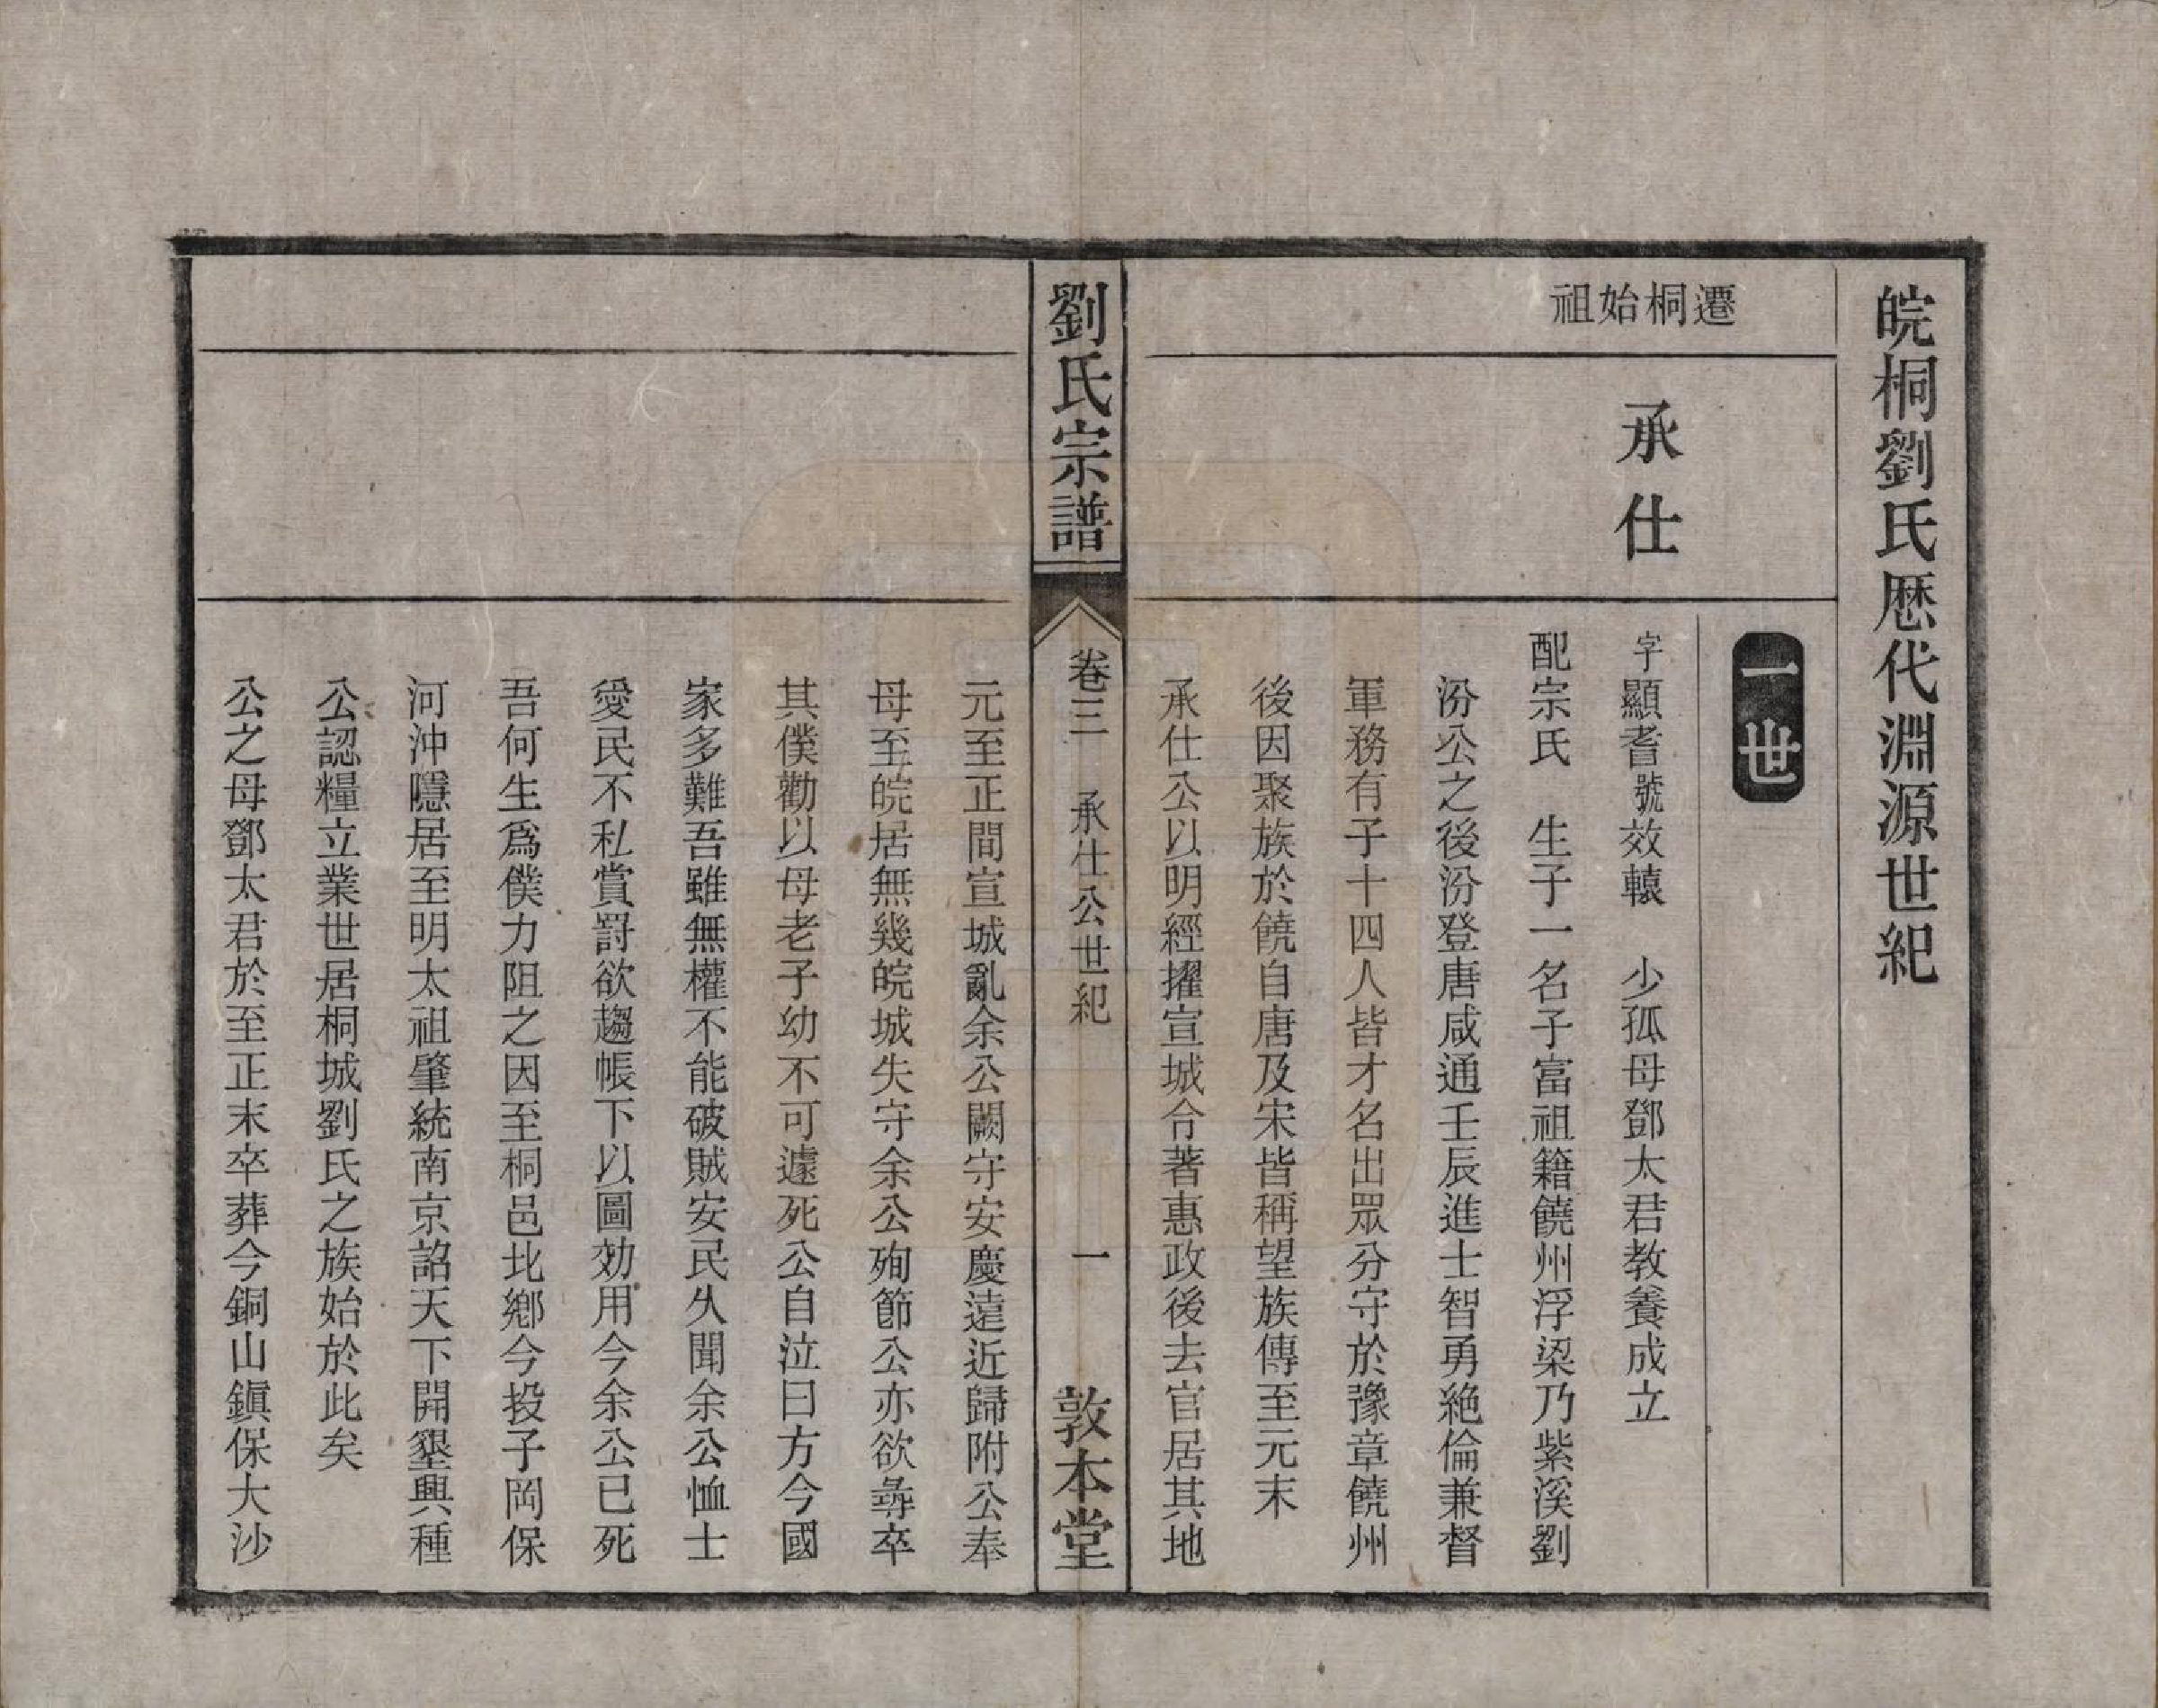 皖桐劉氏歷代淵源世紀
遷桐始祖
承仕
一世
字顯耆號效轅　少孤母鄧太君教養成立
配宗氏　生子一名子富祖籍饒州浮梁乃紫溪劉
汾公之後汾登唐咸通壬辰進士智勇絶倫兼督
軍務有子十四人皆才名出眾分守於豫章饒州
後因聚族於饒自唐及宋皆稱望族傳至元末
承仕公以明經擢宣城令著惠政後去官居其地
劉氏宗譜
卷三　承仕公世紀　一
敦本堂
元至正間宣城亂余公闕守安慶遠近歸附公奉
母至皖居無幾皖城失守余公殉節公亦欲尋卒
其僕勸以母老子幼不可遽死公自泣曰方今國
家多難吾雖無權不能破賊安民久聞余公恤士
愛民不私賞罰欲趨帳下以圖効用今余公已死
吾何生爲僕力阻之因至桐邑北鄉今投子岡保
河沖隱居至明太祖肇統南京詔天下開墾興種
公認糧立業世居桐城劉氏之族始於此矣
公之母鄧太君於至正末卒葬今銅山鎭保大沙